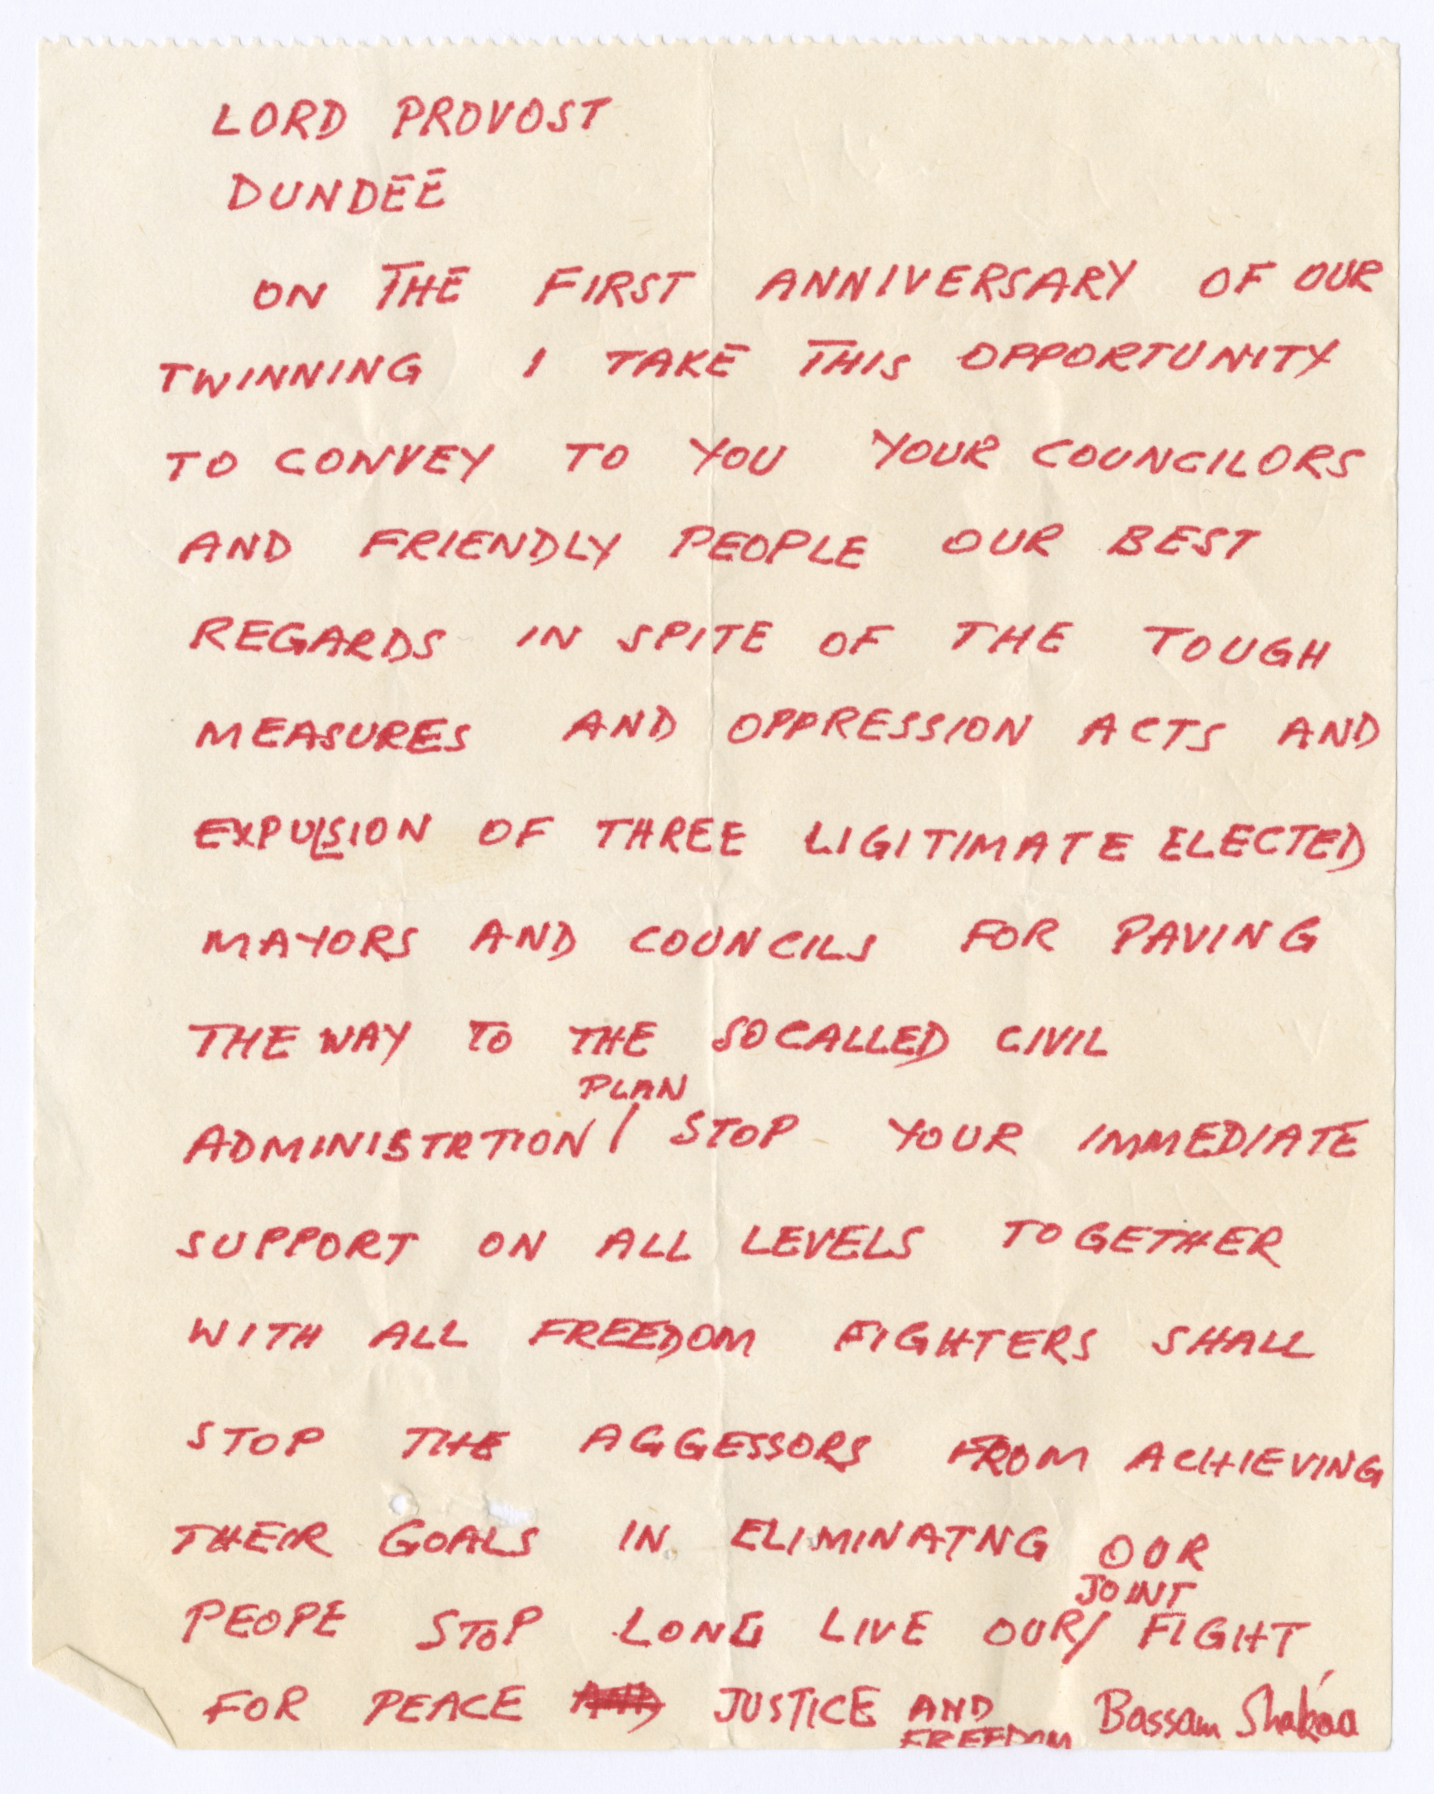 LORD PROVOST
DUNDEE
ON THE FIRST ANNIVERSARY OF OUR
TWINNING I TAKE THIS OPPORTUNITY
TO CONVEY TO YOU YOUR COUNCILORS
AND FRIENDLY PEOPLE OUR BEST
REGARDS IN SPITE OF THE TOUGH
MEASURES AND OPPRESSION ACTS AND
EXPULSION OF THREE LIGITIMATE ELECTED
MAYORS AND COUNCILS FOR PAVING
THE WAY TO THE SOCALLED CIVIL
PLAN
ADMINISTRTION / STOP YOUR IMMEDIATE
SUPPORT ON ALL LEVELS TOGETHER
WITH ALL FREEDOM FIGHTERS SHALL
STOP THE AGGESSORS FROM ACHIEVING
THEIR GOALS IN ELIMINATNG OUR
JOINT
PEOPE STOP LONG LIVE OUR / FIGHT
FOR PEACE AND JUSTICE AND Bassam Shaka'a
FREEDOM